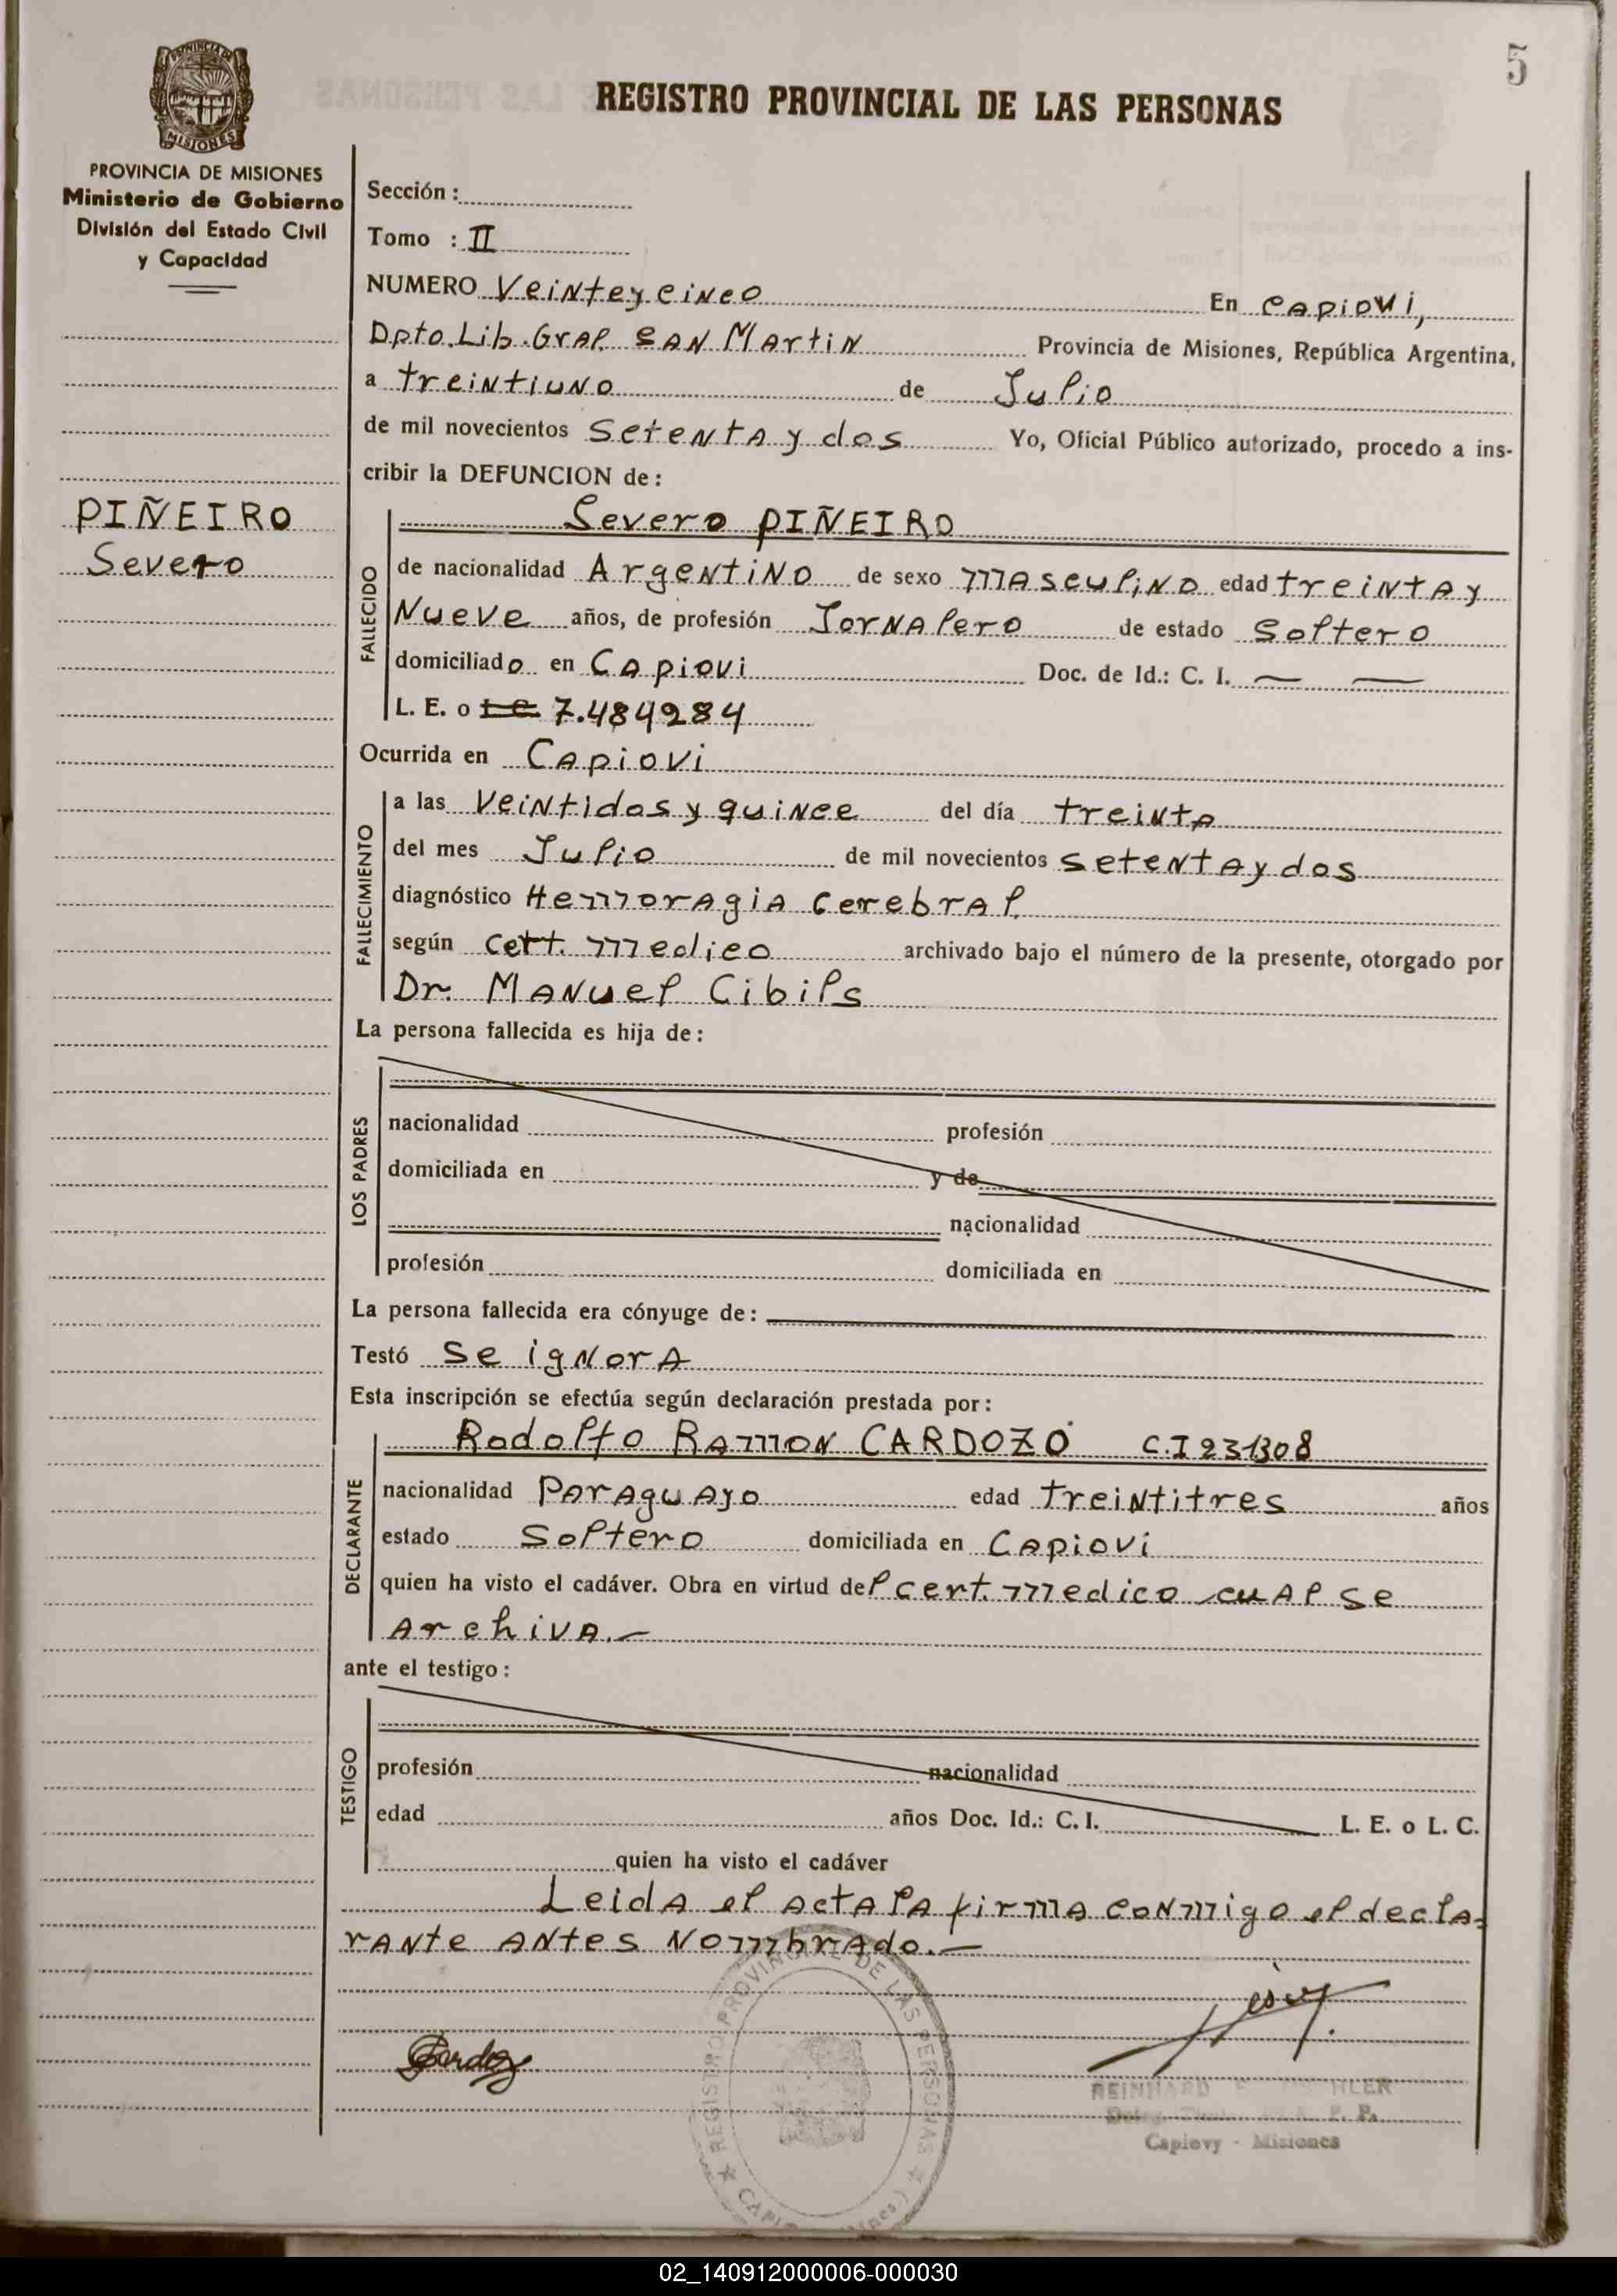 5
REGISTRO PROVINCIAL DE LAS PERSONAS
PROVINCIA DE MISIONES
Ministerio de Gobierno
División del Estado Civil
y Capacidad
Sección :
Tomo : II
NUMERO Veinteycinco En Capiovi,
Dpto. Lib. Gral. SAN Martin Provincia de Misiones, República Argentina,
a treintiuno de Julio
de mil novecientos Setenta y dos Yo, Oficial Público autorizado, procedo a ins-
cribir la DEFUNCION de :
PIÑEIRO
Severo
FALLECIDO
Severo PIÑEIRO
de nacionalidad Argentino de sexo masculino edad treinta y
Nueve años, de profesión Jornalero de estado Soltero
domiciliado en Capiovi Doc. de Id.: C. I. — —
L. E. o L C 7.484284
Ocurrida en Capiovi
FALLECIMIENTO
a las Veintidos y quince del día treinta
del mes Julio de mil novecientos setenta y dos
diagnóstico Hemoragia Cerebral.
según cert. medico archivado bajo el número de la presente, otorgado por
Dr. Manuel Cibils
La persona fallecida es hija de :
LOS PADRES
nacionalidad profesión
domiciliada en y de
nacionalidad
profesión domiciliada en
La persona fallecida era cónyuge de :
Testó se ignora
Esta inscripción se efectúa según declaración prestada por :
DECLARANTE
Rodolfo Ramon CARDOZO C.I 231308
nacionalidad Paraguayo edad treintitres años
estado Soltero domiciliada en Capiovi
quien ha visto el cadáver. Obra en virtud del cert. medico cual se
Archiva.—
ante el testigo :
TESTIGO
profesión nacionalidad
edad años Doc. Id.: C. I. L. E. o L. C.
quien ha visto el cadáver
Leida el acta la firma conmigo el decla=
rante antes Nombrado.—
REGISTRO PROVINCIAL DE LAS PERSONAS
REINHARD
Capiovy - Misiones
02_140912000006-000030